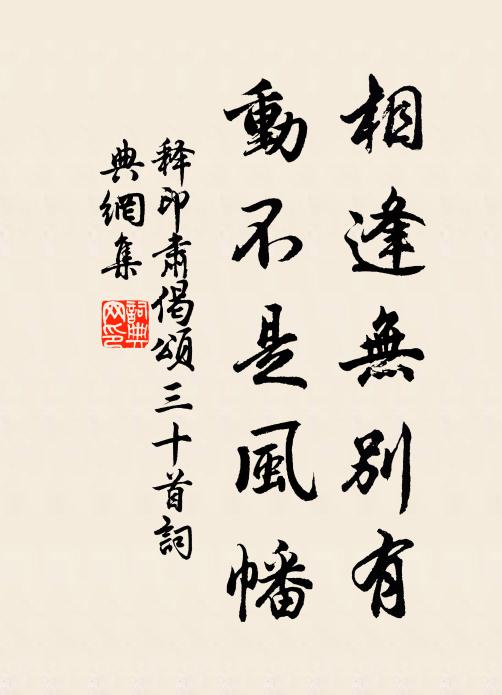 相逢無別有
動不是風幡
释印肃偈頌三十首詞
典網集
詞典
网印